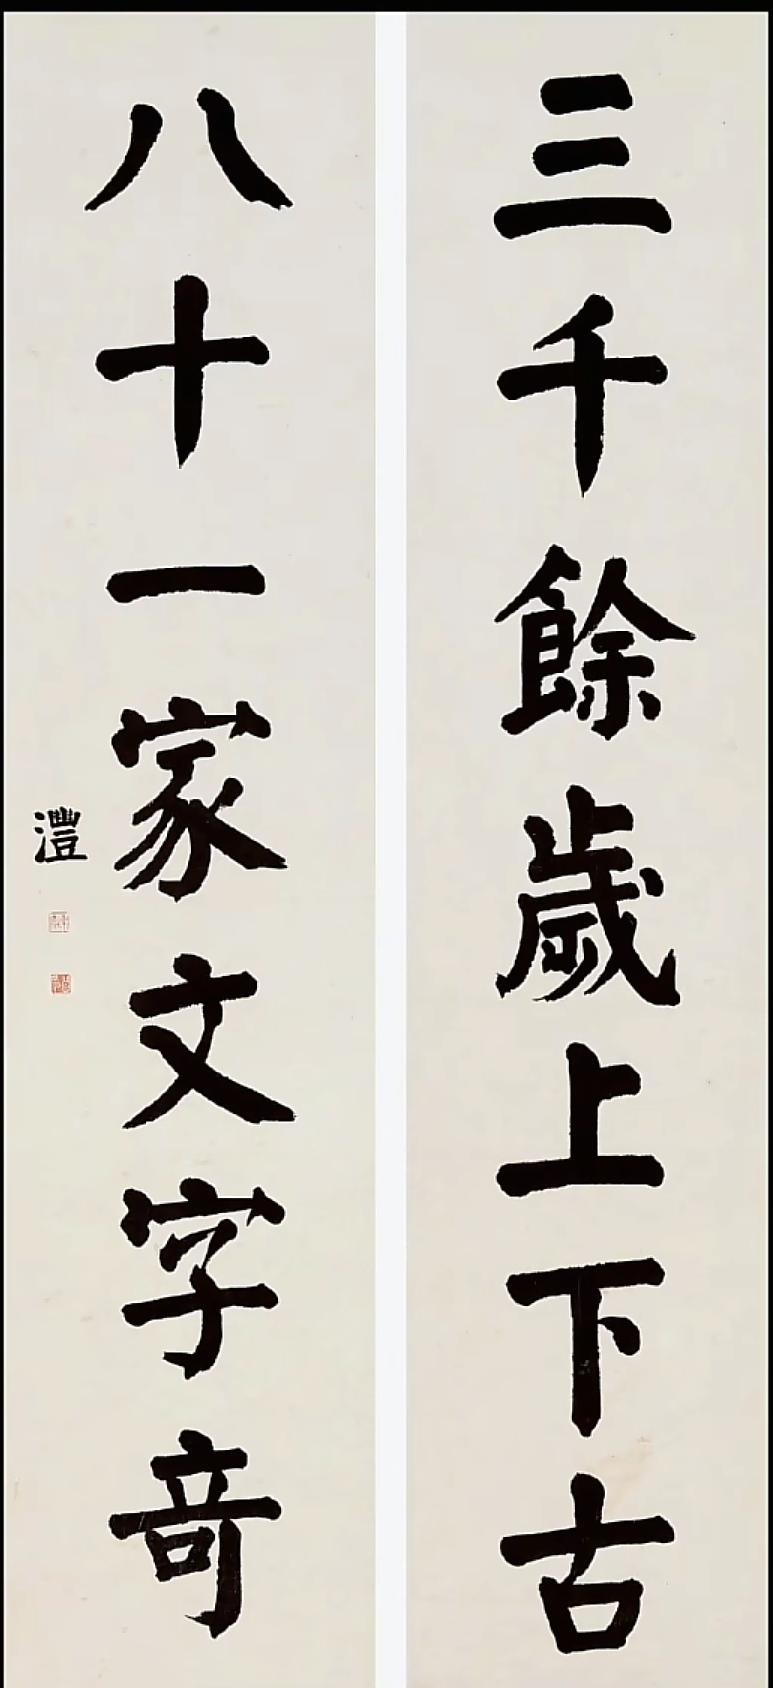 三千餘歲上下古
八十一家文字竒
澧